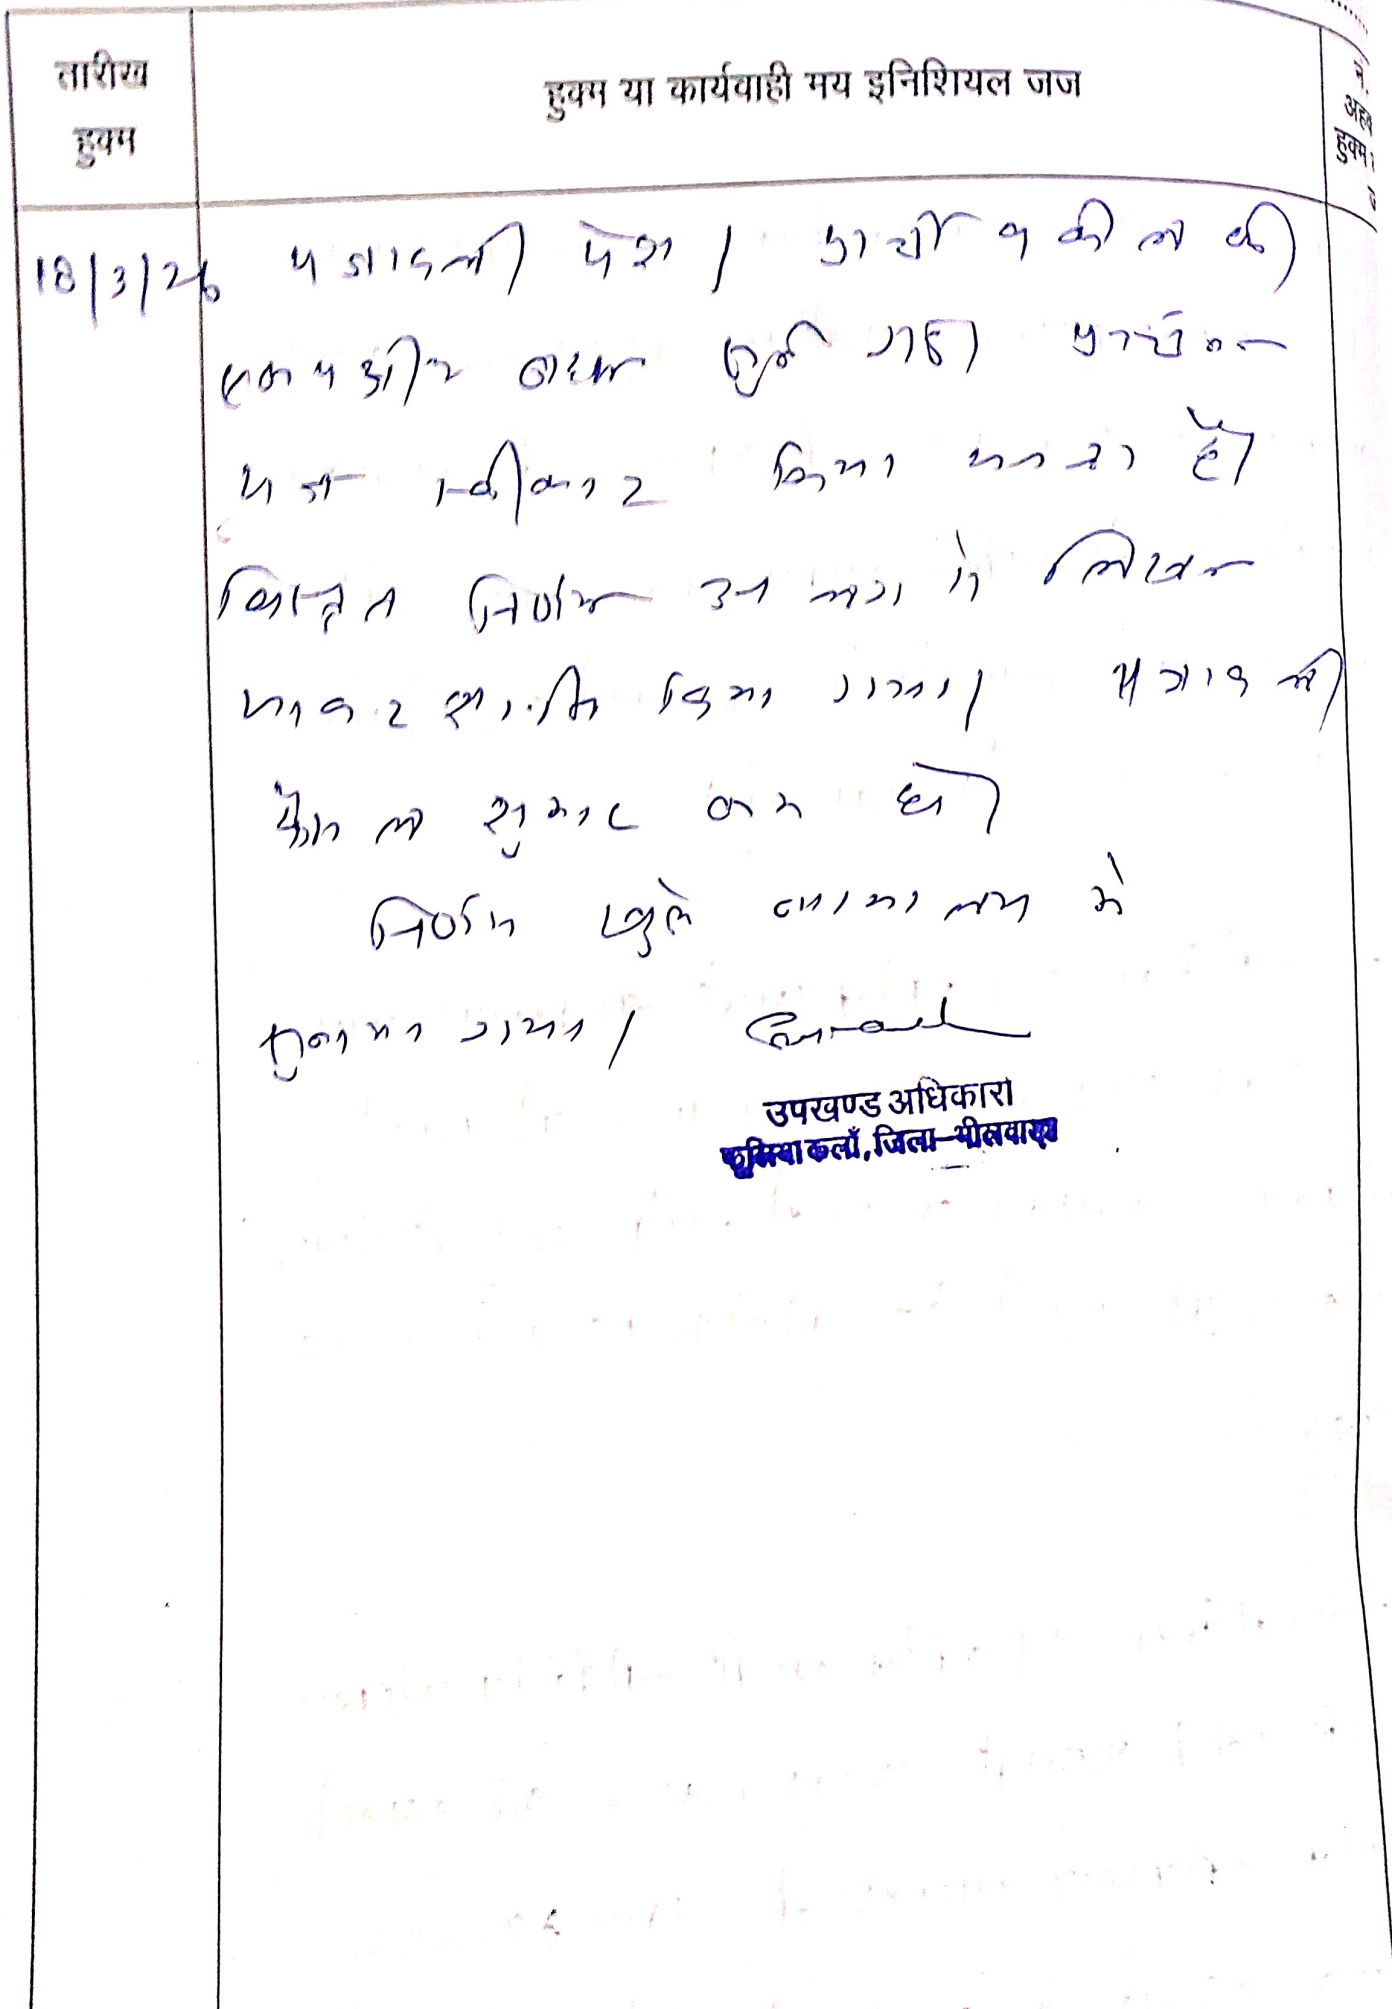 तारीख
हुक्म
हुक्म या कार्यवाही मय इनिशियल जज
हुक्म
18/3/26 पत्रावली पेश। प्रार्थी वकील की
एकपक्षीय बहस सुनी गई। प्रार्थना
पत्र स्वीकार किया जाता है।
विस्तृत निर्णय अलग से लिखा
जाकर शामिल किया गया। पत्रावली
फैसल शुमार कम हो।
निर्णय खुले न्यायालय मे
सुनाया गया।
उपखण्ड अधिकारी
फूलिया कलाँ, जिला-भीलवाड़ा